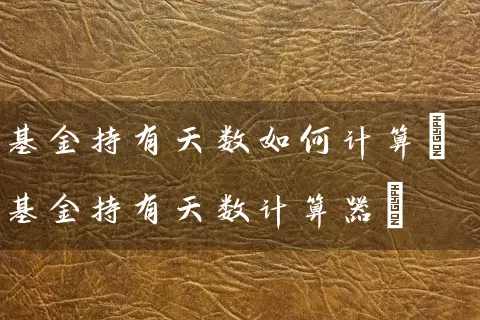 基金持有天数如何计算
基金持有天数计算器